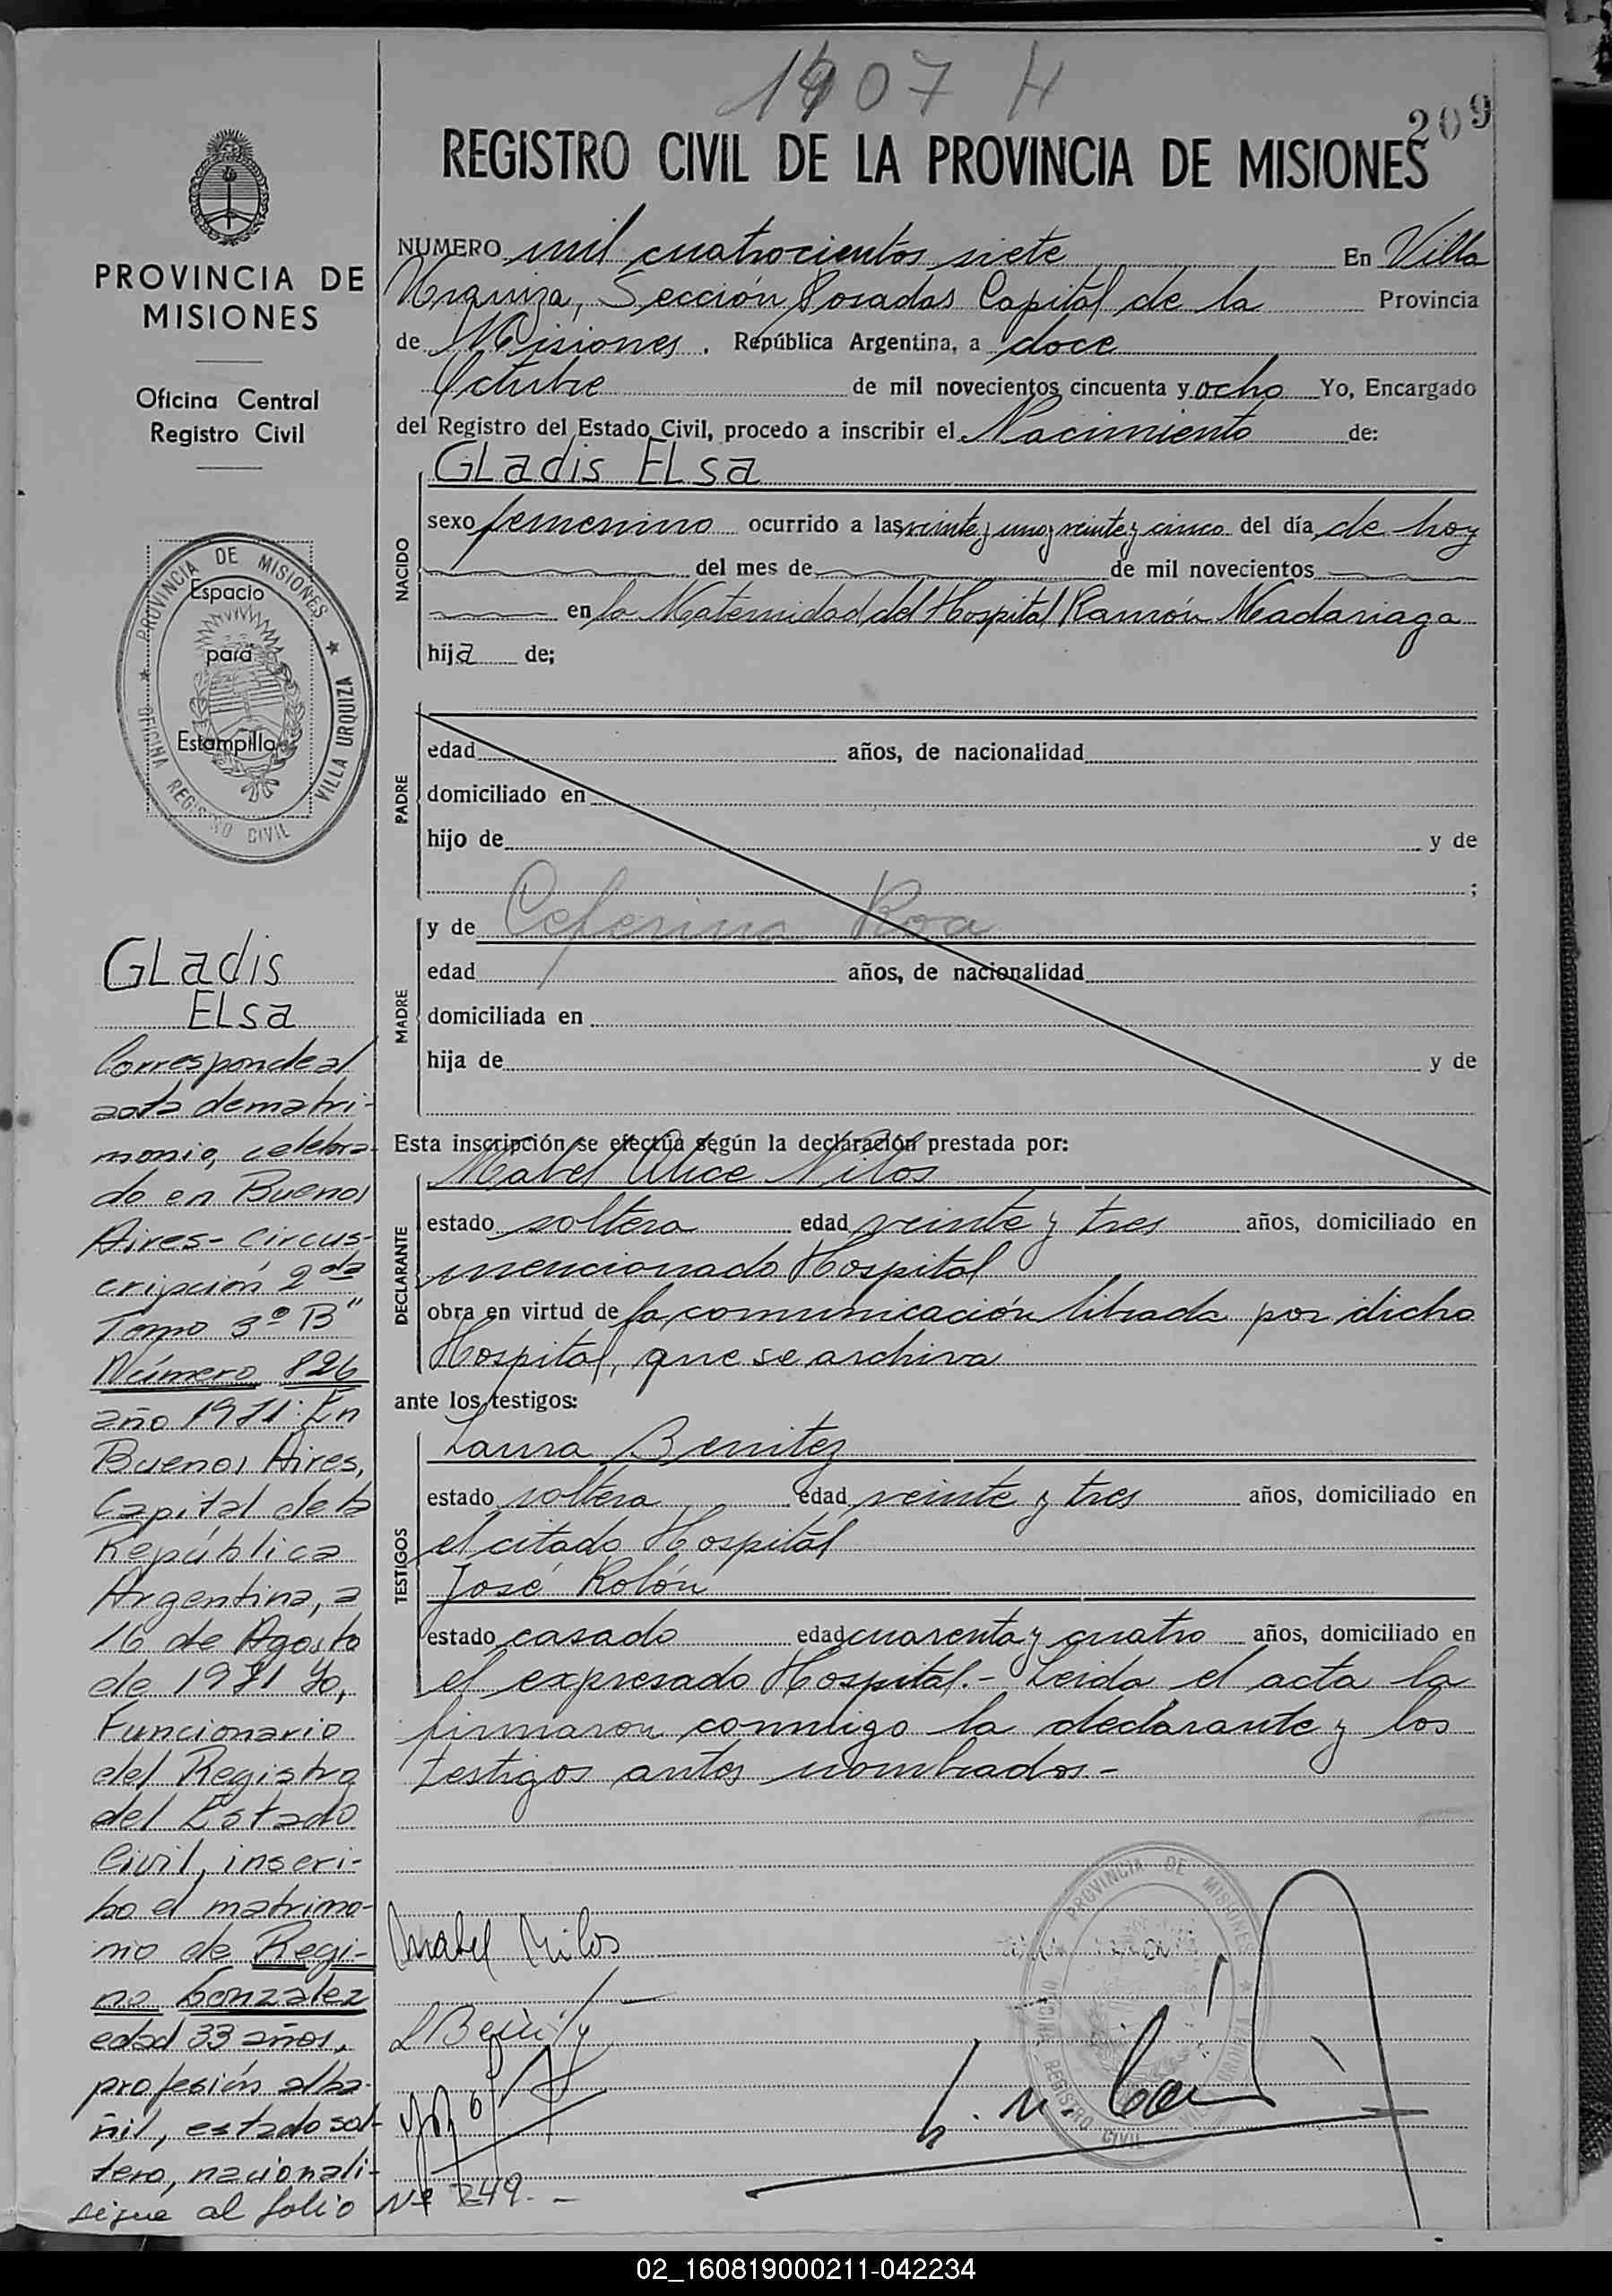 1407 H
209
REGISTRO CIVIL DE LA PROVINCIA DE MISIONES
PROVINCIA DE
MISIONES
Oficina Central
Registro Civil
PROVINCIA DE MISIONES
OFICINA REGISTRO CIVIL
VILLA URQUIZA
Espacio
para
Estampilla
Gladis
Elsa
Corresponde al
acta de matri-
monio, celebra-
do en Buenos
Aires - Circus-
cripción 2da
Tomo 3º B"
Número 826
año 1971: En
Buenos Aires,
Capital de la
República
Argentina, a
16 de Agosto
de 1971 Yo,
Funcionario
del Registro
del Estado
Civil, inscri-
bo el matrimo-
nio de Regi-
no Gonzalez
edad 33 años,
profesión alba-
ñil, estado sol-
tero, nacionali-
sigue al folio Nº 249.-
NUMERO mil cuatrocientos siete En Villa
Urquiza, Sección Posadas Capital de la Provincia
de Misiones. República Argentina, a doce
Octubre de mil novecientos cincuenta y ocho Yo, Encargado
del Registro del Estado Civil, procedo a inscribir el Nacimiento de:
NACIDO
Gladis Elsa
sexo femenino ocurrido a las veinte y uno y veinte y cinco del día de hoy
del mes de de mil novecientos
en la Maternidad del Hospital Ramón Madariaga
hija de;
PADRE
edad años, de nacionalidad
domiciliado en
hijo de y de
;
MADRE
y de Ceferina Roa
edad años, de nacionalidad
domiciliada en
hija de y de
Esta inscripción se efectúa según la declaración prestada por:
DECLARANTE
Mabel Alice Nilos
estado soltera edad veinte y tres años, domiciliado en
mencionado Hospital
obra en virtud de la comunicación librada por dicho
Hospital, que se archiva
ante los testigos:
TESTIGOS
Laura Benitez
estado soltera edad veinte y tres años, domiciliado en
el citado Hospital
José Rolón
estado casado edad cuarenta y cuatro años, domiciliado en
el expresado Hospital.- Leida el acta la
firmaron conmigo la declarante y los
testigos antes nombrados.-
Mabel Nilos
PROVINCIA DE MISIONES
REGISTRO CIVIL
02_160819000211-042234